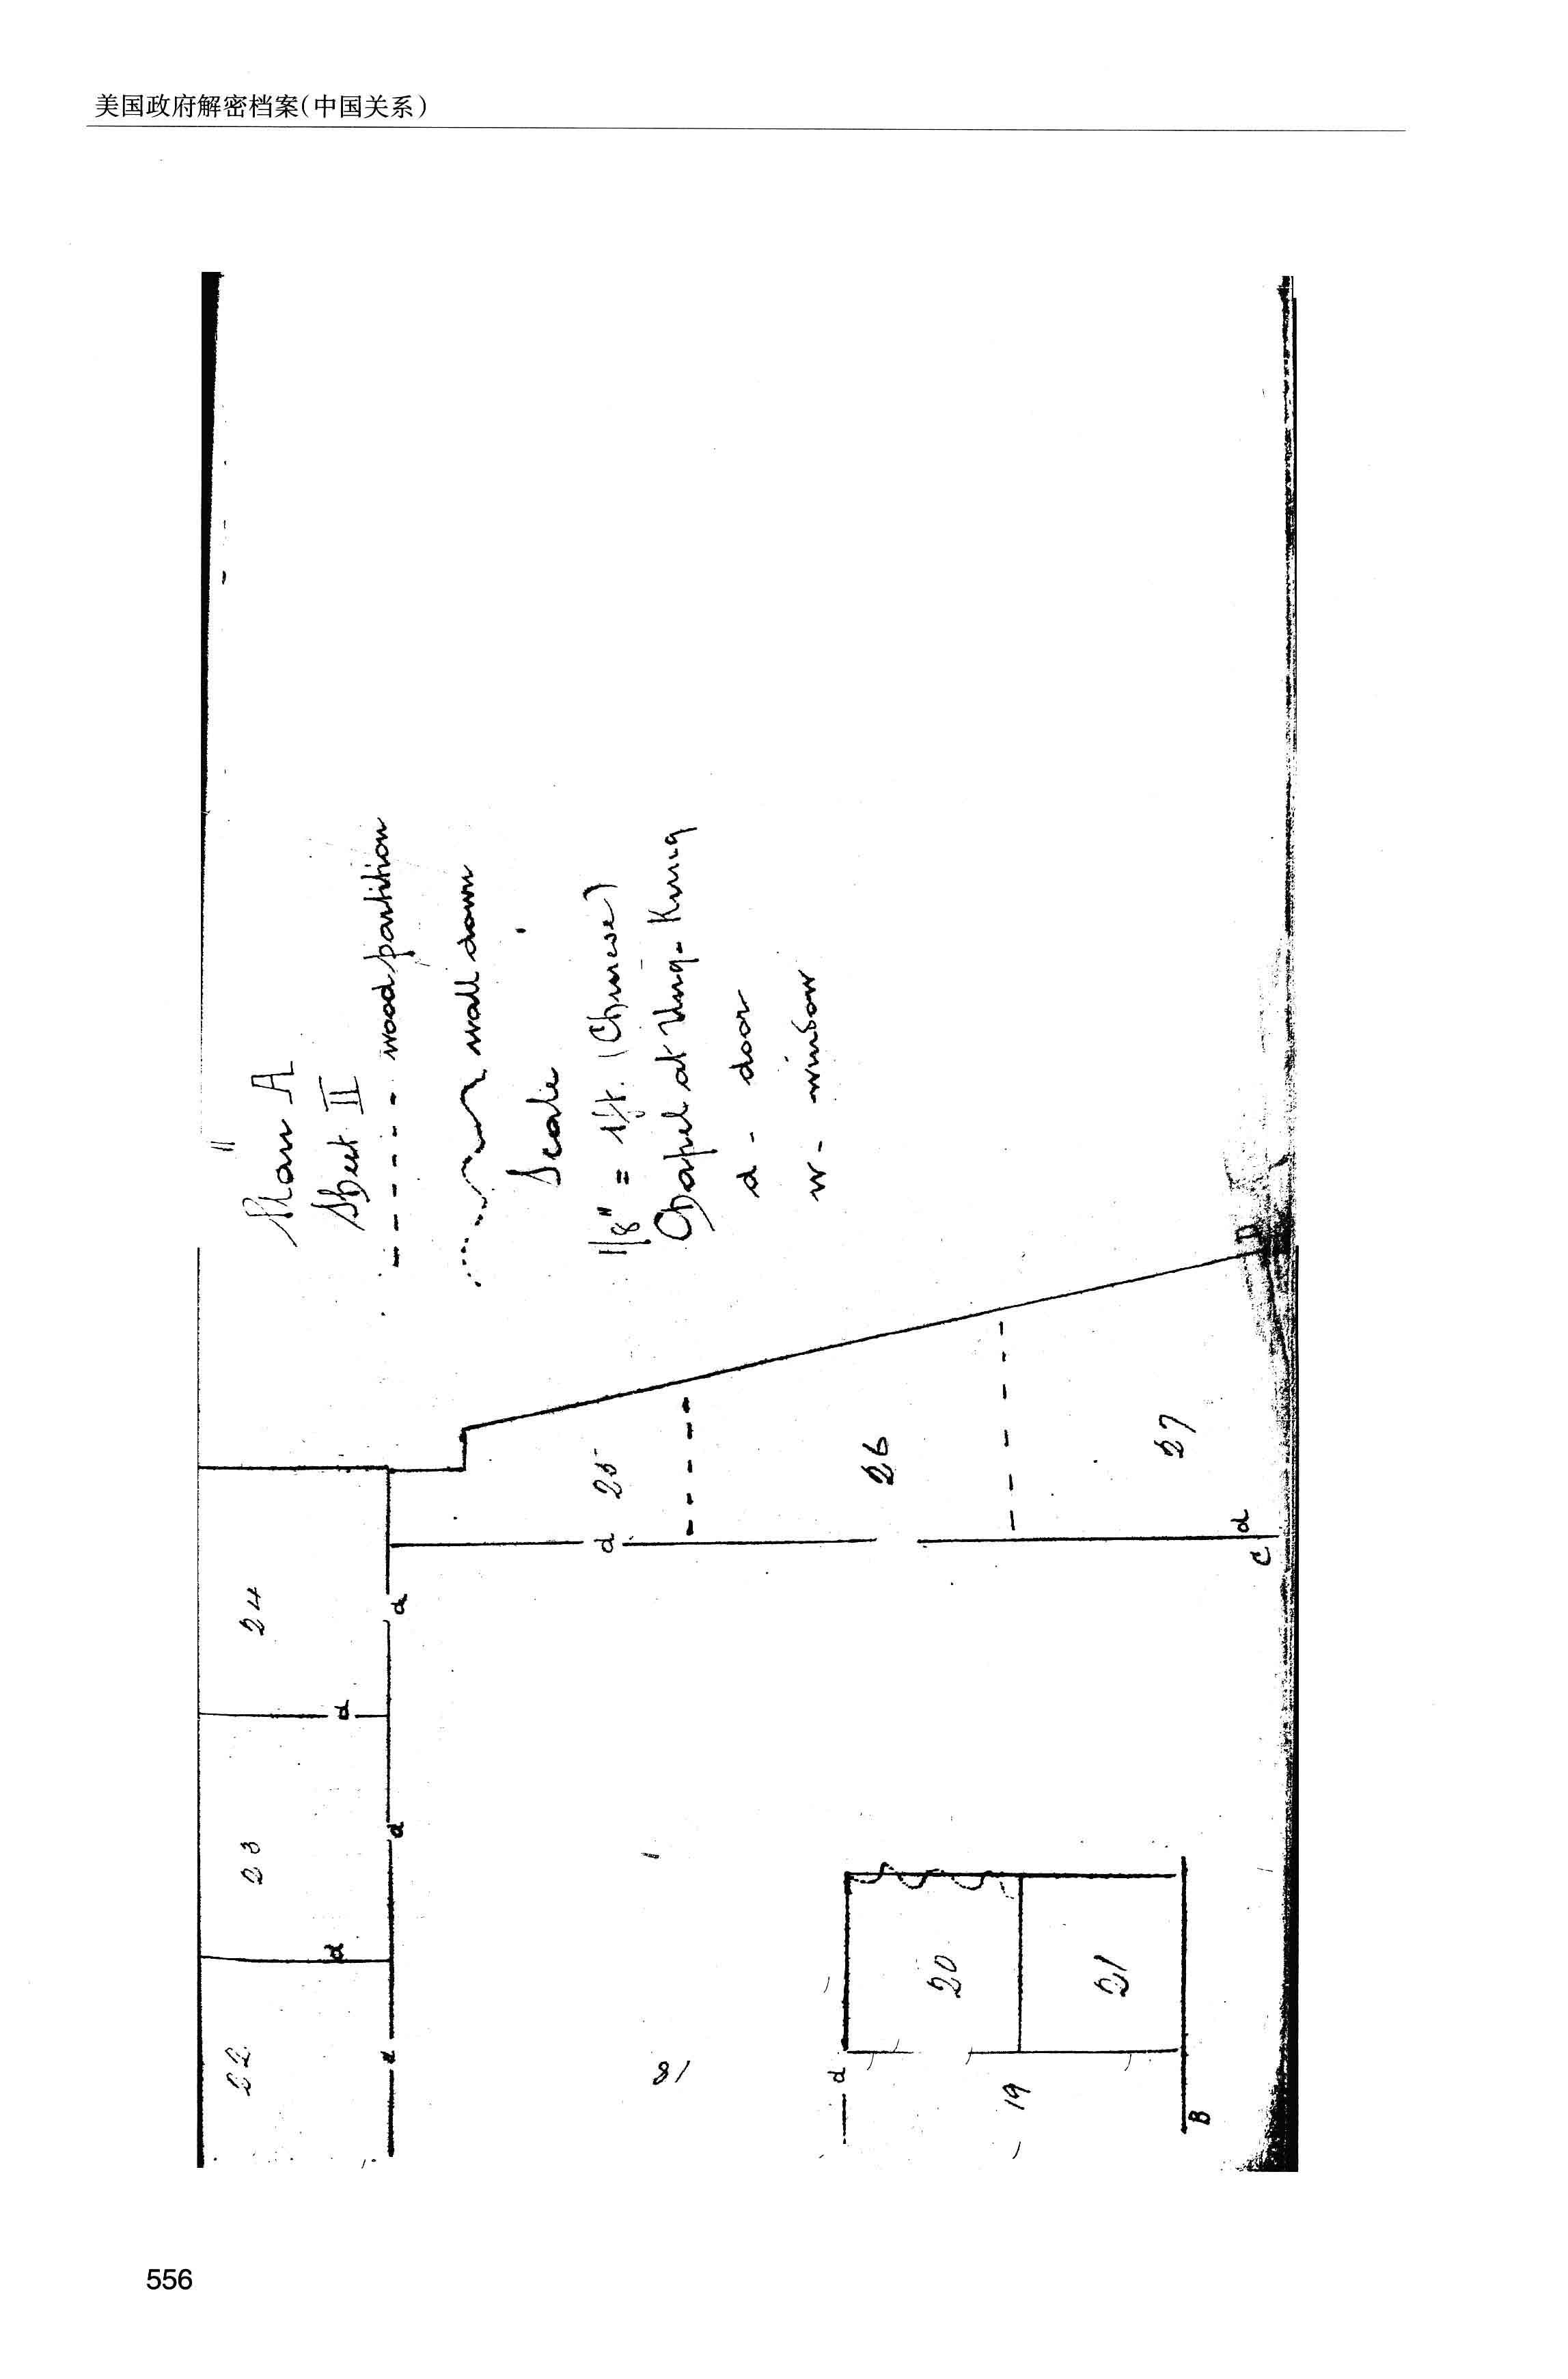 美国政府解密档案(中国关系)
Plan A
Sheet II
wood partition
wall down
Scale
1/8" = 1ft. (Chinese)
Chapel at Ung-Kung
d - door
w - window
22
d
23
d
24
d
d
d
d
25
26
27
d
C
D
18
d
19
20
21
B
556